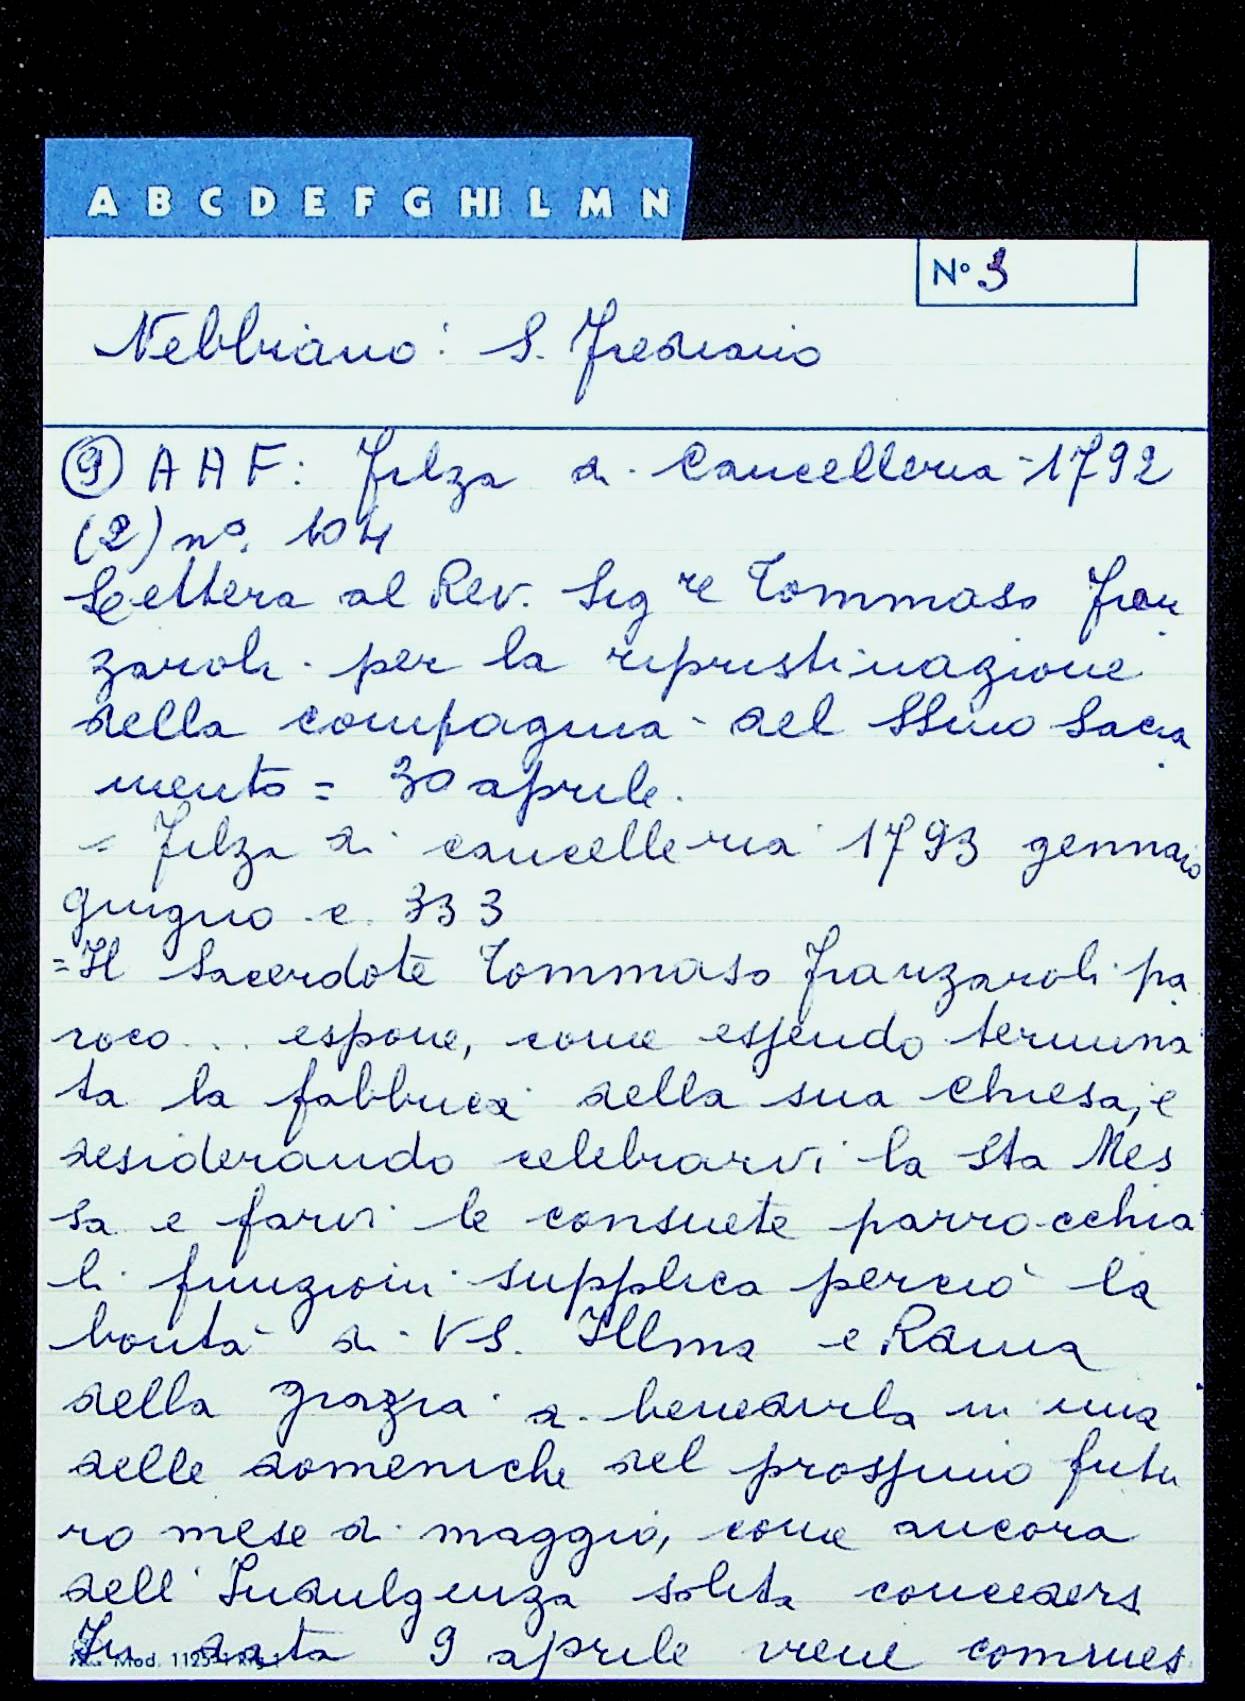 A B C D E F G HI L M N
N° 3
Nebbiano: S. Frediano
⑨ A A F: Filza di Cancelleria 1792
(2) n°. 104
Lettera al Rev. Sigre Tommaso Fran
zaroli per la ripristinazione
della compagnia del SSmo Sacra
mento = 30 aprile.
= Filza di cancelleria 1793 gennaio
giugno c. 333
= Il Sacerdote Tommaso Franzaroli pa
roco... espone, come essendo termina
ta la fabbrica della sua Chiesa, e
desiderando celebrarvi la Sta Mes
sa e farvi le consuete parrocchia
li funzioni supplica perciò la
bontà di VS. Illma e Rdma
della grazia di benedirla in una
delle domeniche del prossimo futu
ro mese di maggio, come ancora
dell'Indulgenza solita concedersi
In data 9 aprile viene commes
Mod. 1125